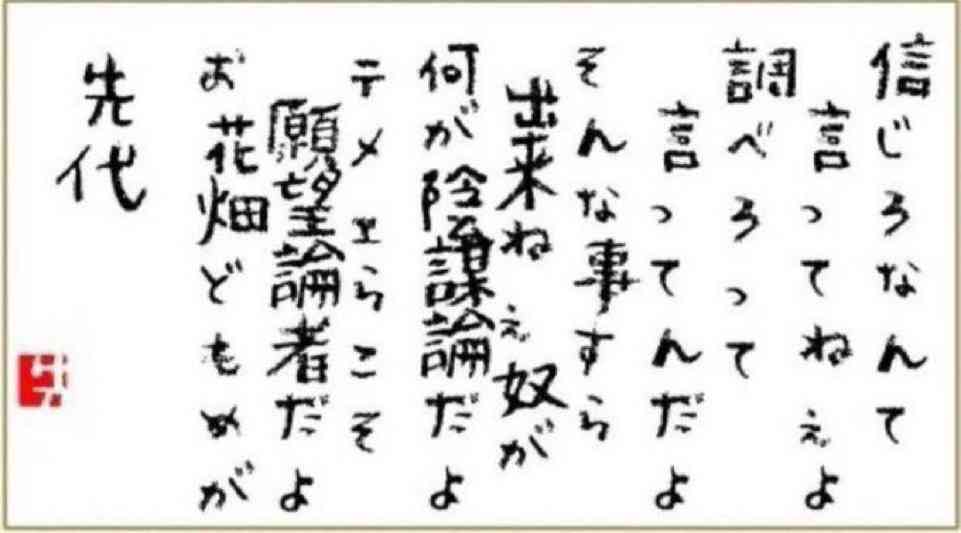 信じろなんて
言ってねぇよ
調べろって
言ってんだよ
そんな事すら
出来ねぇ奴が
何が陰謀論だよ
テメェらこそ
願望論者だよ
お花畑どもめが
先代